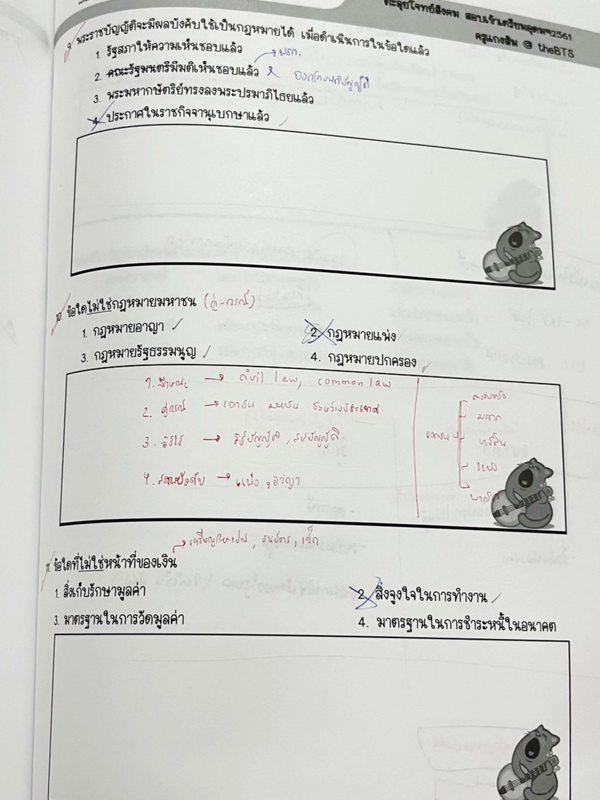 ตะลุยโจทย์สังคม สอบเข้าเตรียมอุดมฯ2561
ครูแกงส้ม @ theBTS
9. พระราชบัญญัติจะมีผลบังคับใช้เป็นกฎหมายได้ เมื่อดำเนินการในข้อใดแล้ว
1. รัฐสภาให้ความเห็นชอบแล้ว
2. คณะรัฐมนตรีมีมติเห็นชอบแล้ว
3. พระมหากษัตริย์ทรงลงพระปรมาภิไธยแล้ว
4. ประกาศในราชกิจจานุเบกษาแล้ว
10. ข้อใดไม่ใช่กฎหมายมหาชน (คู่-กรณี)
1. กฎหมายอาญา
2. กฎหมายแพ่ง
3. กฎหมายรัฐธรรมนูญ
4. กฎหมายปกครอง
1. ลักษณะ → civil law, common law
2. คู่กรณี → เอกชน มหาชน ระหว่างประเทศ
3. วิธีใช้ → สารบัญญัติ, สบัญญัติ
4. → แพ่ง, อาญา
เอกชน
ครอบครัว
มรดก
ทรัพย์สิน
11. ข้อใดที่ไม่ใช่หน้าที่ของเงิน
→ เหรียญกษาปณ์, ธนบัตร, เช็ค
1. สิ่งเก็บรักษามูลค่า
2. สิ่งจูงใจในการทำงาน
3. มาตรฐานในการวัดมูลค่า
4. มาตรฐานในการชำระหนี้ในอนาคต